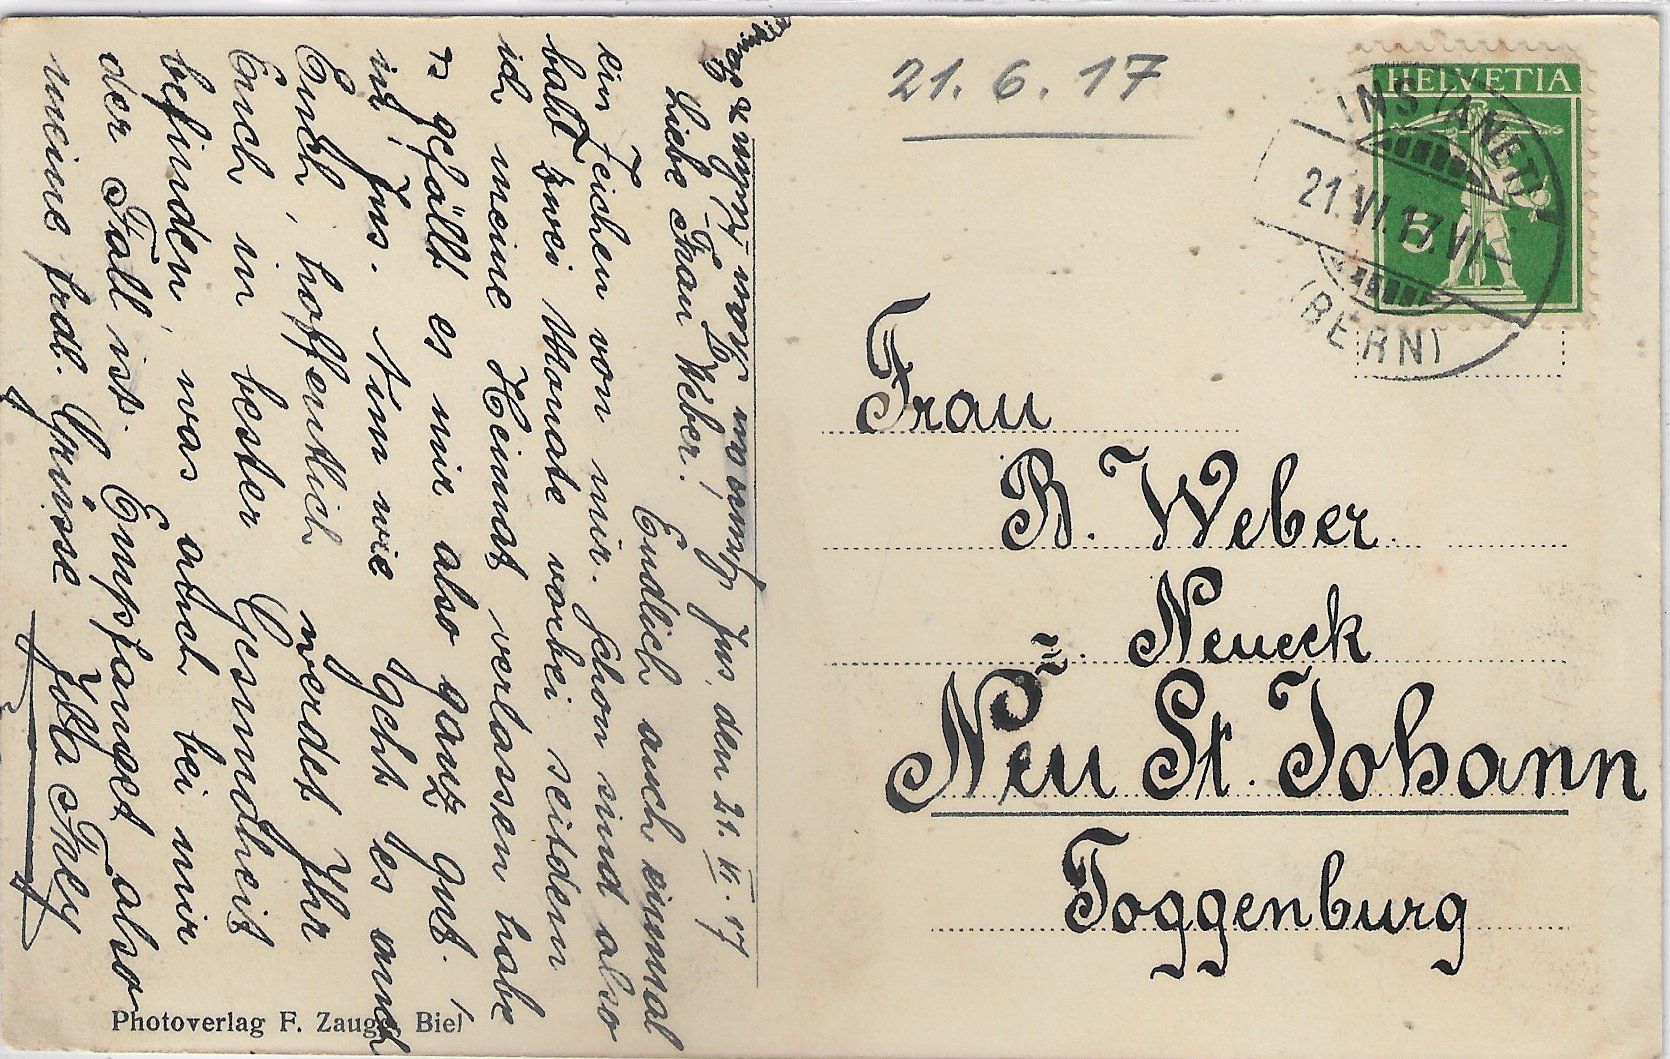 Ins, den 21. VI. 17
Liebe Frau Weber!
Endlich auch einmal
ein Zeichen von mir. Schon sind also
bald zwei Monate vorbei seitdem
ich meine Heimat verlassen habe
es gefällt es mir also ganz gut
in Ins. Nun wie geht es auch
Euch, hoffentlich werdet Ihr
Euch in bester Gesundheit
befinden, was auch bei mir
der Fall ist. Empfanget also
meine frdl. Grüsse
Photoverlag F. Zaugg, Biel
21. 6. 17
HELVETIA
5
INS (ANET)
21.VI.17.VI
(BERN)
Frau
R. Weber
z. Neueck
Neu St. Johann
Toggenburg